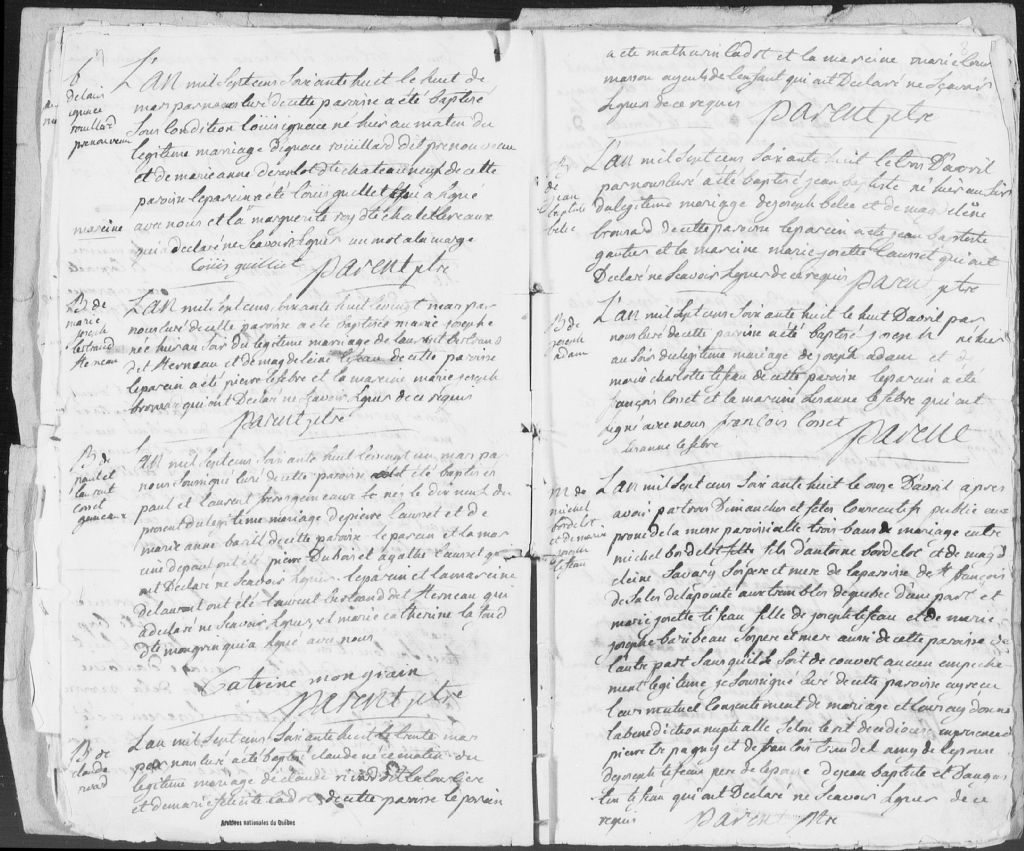 b
de louis
ignace
rouillard
prenouveau
L'an mil sept cens soixante huit le huit de
mars par nous curé de cette paroisse a été baptisé
sous condition louis ignace né hier au matin du
legitime mariage d'ignace rouillard dit prenouveau
et de marie anne derenlot dte chateauneuf de cette
paroisse le parein a été louis quillet qui a signé
mareine
avec nous et la marguerite roy dte chatellereaux
qui a declaré ne scavoir signer un mot a la marge
louis quilliet parent ptre
B de
marie
joseph
bertrand
sterneau
L'an mil sept cens soixante huit le vingt mars par
nous curé de cette paroisse a été baptisée marie josephe
née hier au soir du legitime mariage de laurent bertrand
dit sterneau et de magdeleine lefeau de cette paroisse
le parein a été pierre lefebre et la mareine marie joseph
qui ont declaré ne scavoir signer de ce requis
parent ptre
B de
paul et
laurent
cosset
gemeaux
L'an mil sept cens soixante huit le vingt un mars par
nous soussigné curé de cette paroisse ont été baptisés
paul et laurent freres gemeaux nez le dix neuf du
present du legitime mariage de pierre causset et de
marie anne baril de cette paroisse le parein et la mar
eine de paul ont été pierre dubois et agathe causset qui
ont declaré ne scavoir signer. le parein et la mareine
de laurent ont été laurent bertrand dit sterneau qui
a declaré ne scavoir signer, et marie catherine lafond
dte mongrin qui a signé avec nous
Catrine mongrain
parent ptre
B de
claude
ricard
L'an mil sept cens soixante huit le trente mars
par nous curé a été baptisé claude né ce matin du
legitime mariage de claude ricard
et de marie cadot de cette paroisse le parein
Archives nationales du Québec
a été mathurin cadot et la mareine marie
de l'enfant qui ont declaré ne scavoir
signer de ce requis parent ptre
B
de
jean
baptiste
belce
L'an mil sept cens soixante huit le trois d'avril
par nous curé a été baptisé jean baptiste né hier au soir
du legitime mariage de joseph belce et de magdeleine
brousard de cette paroisse le parein a été jean baptiste
gautier et la mareine marie josette causset qui ont
declaré ne scavoir signer de ce requis parent ptre
B de
joseph
adam
L'an mil sept cens soixante huit le huit d'avril par
nous curé de cette paroisse a été baptisé joseph né hier
au soir du legitime mariage de joseph adam et de
marie charlotte lefeau de cette paroisse le parein a été
françois cosset et la mareine susanne lefebre qui ont
signé avec nous francois cosset
susanne lefebre parent
m de
michel
bordelot
et de marie
josette
lefeau
L'an mil sept cens soixante huit le onze d'avril apres
avoir par trois dimanches et fêtes consecutifs publié au
prone de la messe paroissialle trois bans de mariage entre
michel bordelot fils d'antoine bordelot et de magd
eleine savary ses pere et mere de la paroisse de st françois
de sales de la pointe aux trembles de quebec d'une part et
marie josette lefeau fille de joseph lefeau et de marie
josephe baribeau ses pere et mere aussi de cette paroisse de
l'autre part sans qu'il se soit decouvert aucun empeche
ment legitime je soussigné curé de cette paroisse ay recu
leur mutuel consentement de mariage et leur ay donné
la benediction nuptialle selon le rit du diocese en presence de
pierre trepagny et de francois trudel amy de l'epoux
de joseph lefeau pere de l'epouse de jean baptiste et d'augus
tin lefeau qui ont declaré ne scavoir signer de ce
requis parent ptre